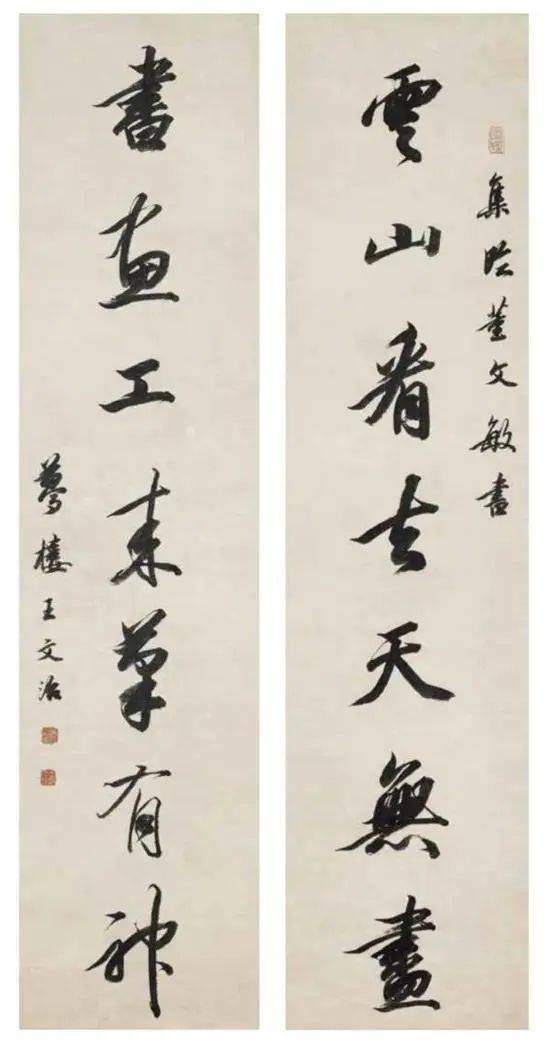 集臨董文敏書
雲山看去天無盡
書畫工來筆有神
夢樓王文治